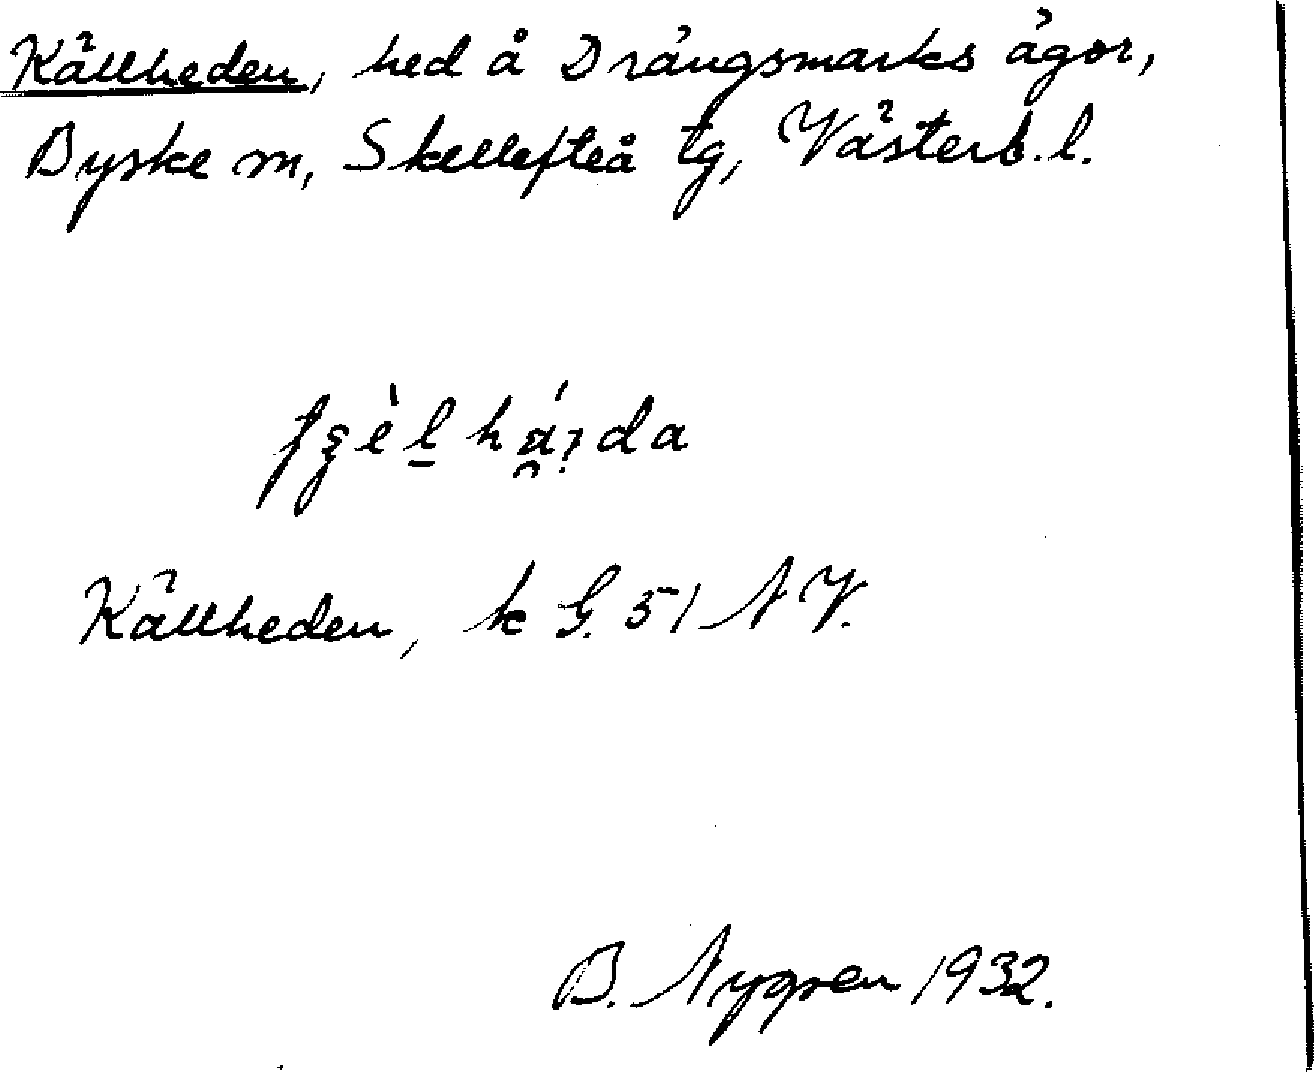 Källheden, hed å Drängsmarks ägor,
Byske sn, Skellefteå tg, Västerb. l.
Källheden, k G. 51 NV.
B. Nygren 1932.